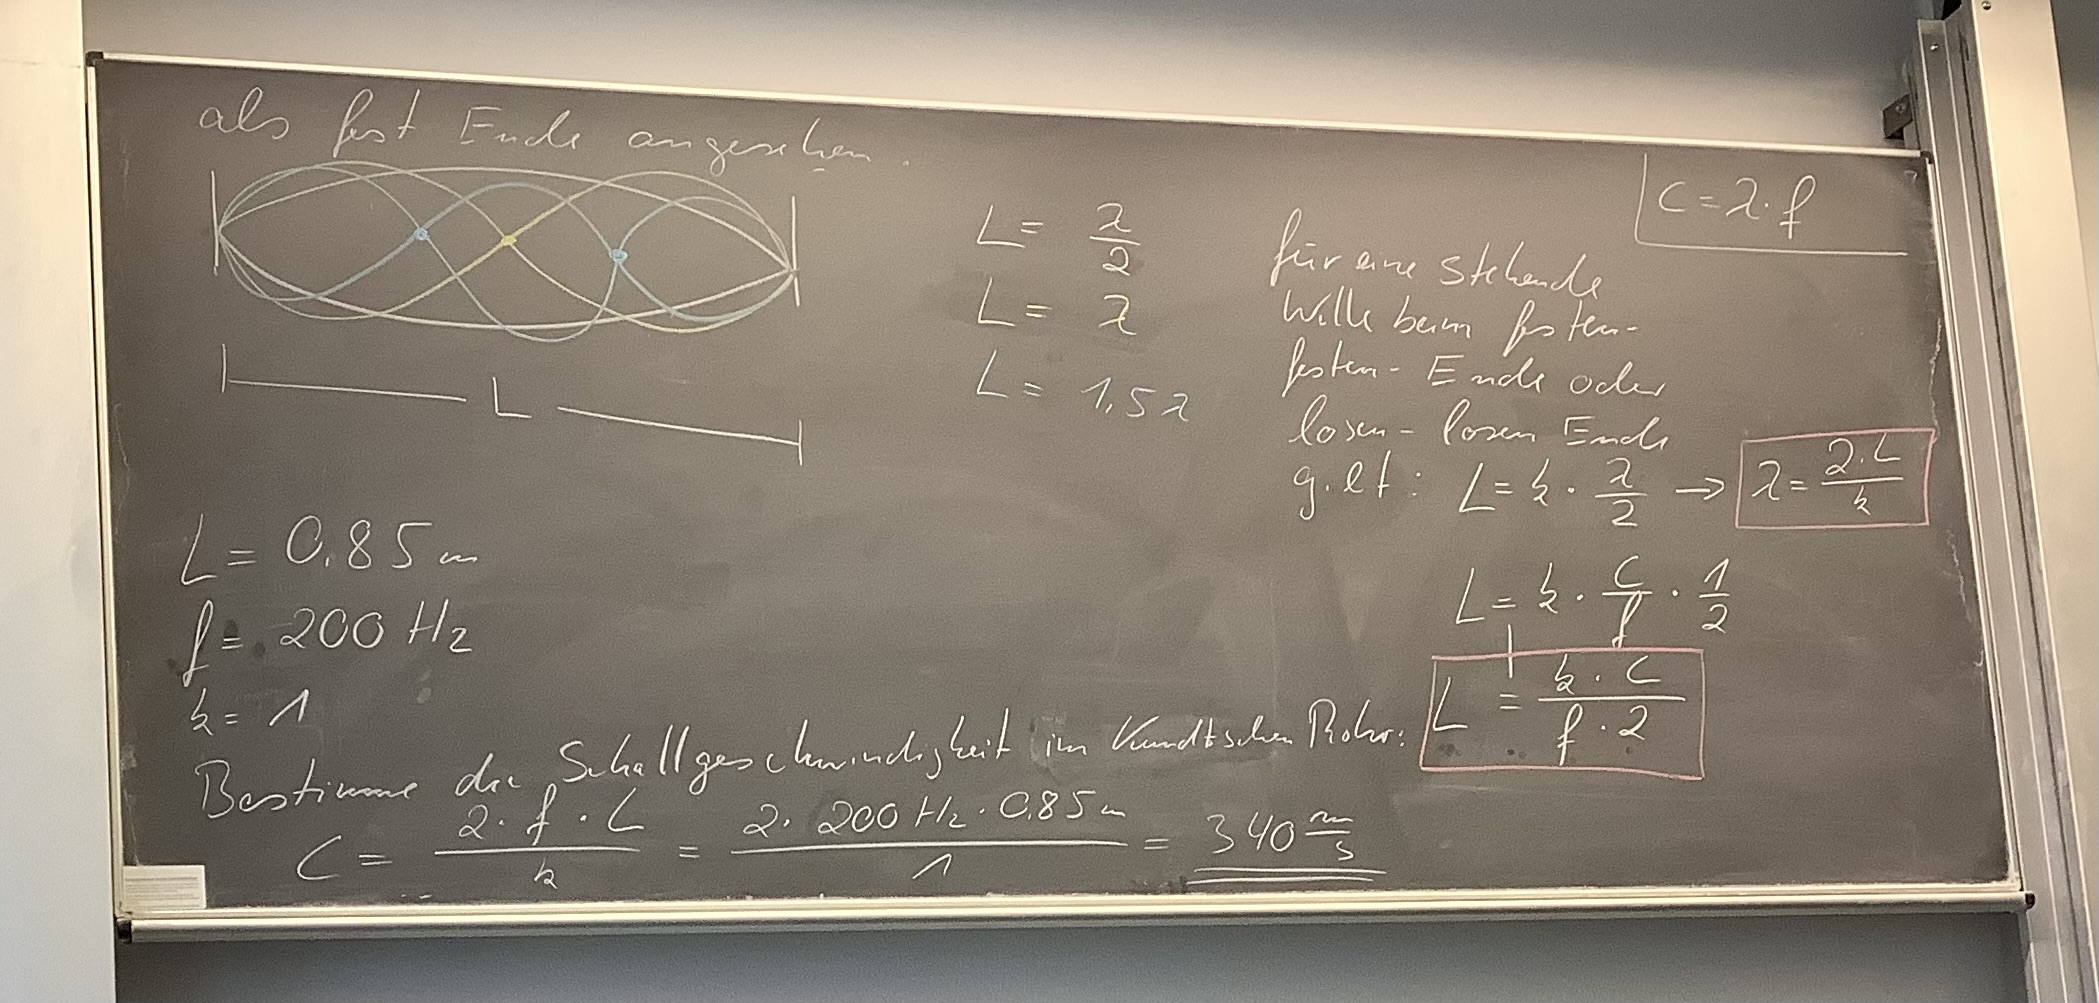 als fest Ende angesehen.
L
L = λ/2
L = λ
L = 1,5λ
c = λ · f
für eine stehende
Welle beim festen-
festen-Ende oder
losen-losen Ende
gilt: L = k · λ/2 → λ = 2·L/k
L = k · c/f · 1/2
L = k · c / f · 2
L = 0,85 m
f = 200 Hz
k = 1
Bestimme die Schallgeschwindigkeit im Kundtschen Rohr:
c = 2 · f · L / k = 2 · 200 Hz · 0,85 m / 1 = 340 m/s